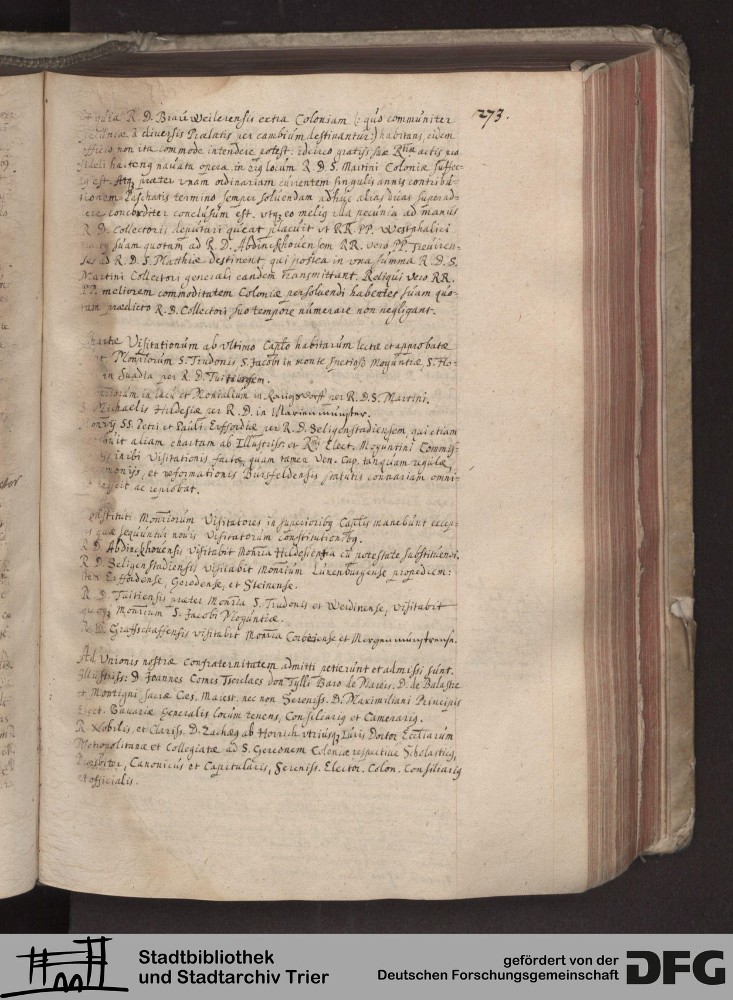 273.
R. D. Brauweilerensis extra Coloniam (: quo communiter
à diversis Prælatis per cambium destinantur:) habitans, eidem
officio non ita commode intendere potest. idcirco gratijs suæ Rmæ actis pro
fideli hactenq navata opera, in eiq locum R. D. S. Martini Coloniæ suffec-
est. Atq præter vnam ordinariam currentem singulis annis contribu-
tionem Paschatis termino semper soluendam adhuc alias duas superad-
dere concorditer conclusum est. vtq eo meliq illa pecunia ad manus
R. D. Collectoris deputari queat placuit vt RR. PP. Westphalici
suam quotam ad R. D. Abdinckhouensem RR. vero PP. Treuiren-
ses ad R. D. S. Matthiæ destinent, qui postea in vna summa R. D. S.
Martini Collectori generali eandem transmittant. Reliqui vero RR.
PP. meliorem commoditatem Coloniæ persoluendi habentes suam quo-
tam prædicto R. D. Collectori suo tempore numerare non negligant.
Chartæ Visitationum ab vltimo Caplo habitarum lectæ et approbatæ
Monriorum S. Trudonis S. Jacobi in monte Moguntiæ, S.
in per R. D. Tuitiensem.
in lacu et Monialium in per R. D. S. Martini.
S. Michaelis Hildesiæ per R. D. in Marienmunster.
SS. Petri et Pauli Erffordiæ per R. D. Seligenstadiensem, qui etiam
aliam chartam ab Illustriss: et Rmi Elect. Moguntini
inibi Visitationis factæ, quam tamen Ven. Cap. tanquam regulæ,
et reformationis Bursfeldensis statutis contrariam omni-
ac reprobat.
Constituti Monriorum Visitatores in superioribq Caplis manebunt excep-
quæ sequuntur nouis Visitatorum constitutionibq.
R. D. Abdinckhouensis visitabit Monria Hildesiensia cu potestate substituendi.
R. D. Seligenstadiensis visitabit Monrium Luxenburgense propediem:
Erffordense, Gerodense, et Steinense.
R. D. Tuitiensis præter Monria S. Trudonis et Werdinense, visitabit
quoq Monrium S. Jacobi Moguntiæ.
R. D. Graffschaffensis visitabit Monria Corbeiense et
Ad Vnionis nostræ Confraternitatem admitti petierunt et admissi sunt.
Illustriss: D. Joannes Comes Tserclaes don Tylli Baro de Mareis. D. de Balastre
et Montigni sacræ Cæs. Maiest. nec non Sereniss. D. Maximiliani Principis
Elect. Bauariæ Generalis locum tenens, Consiliariq et Camerariq.
R. Nobilis, et Clariss. D. Zachæq ab Horrich vtriusq Iuris Doctor Eccliarum
Metropolitanæ et Collegiatæ ad S. Gereonem Coloniæ respectiue Scholasticq,
Presbiter, Canonicus et Capitularis, Sereniss. Elector. Colon. Consiliariq
et officialis.
Stadtbibliothek
und Stadtarchiv Trier
gefördert von der
Deutschen Forschungsgemeinschaft
DFG